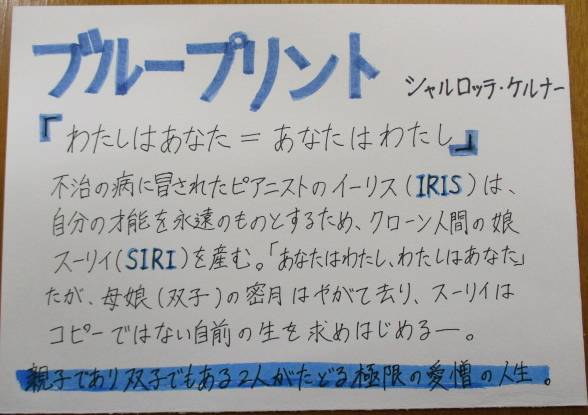 ブループリント
シャルロッテ・ケルナー
『わたしはあなた=あなたはわたし』
不治の病に冒されたピアニストのイーリス(IRIS)は、
自分の才能を永遠のものとするため、クローン人間の娘
スーリイ(SIRI)を産む。「あなたはわたし、わたしはあなた」
だが、母娘(双子)の密月はやがて去り、スーリイは
コピーではない自前の生を求めはじめる―。
親子であり双子でもある2人がたどる極限の愛憎の人生。